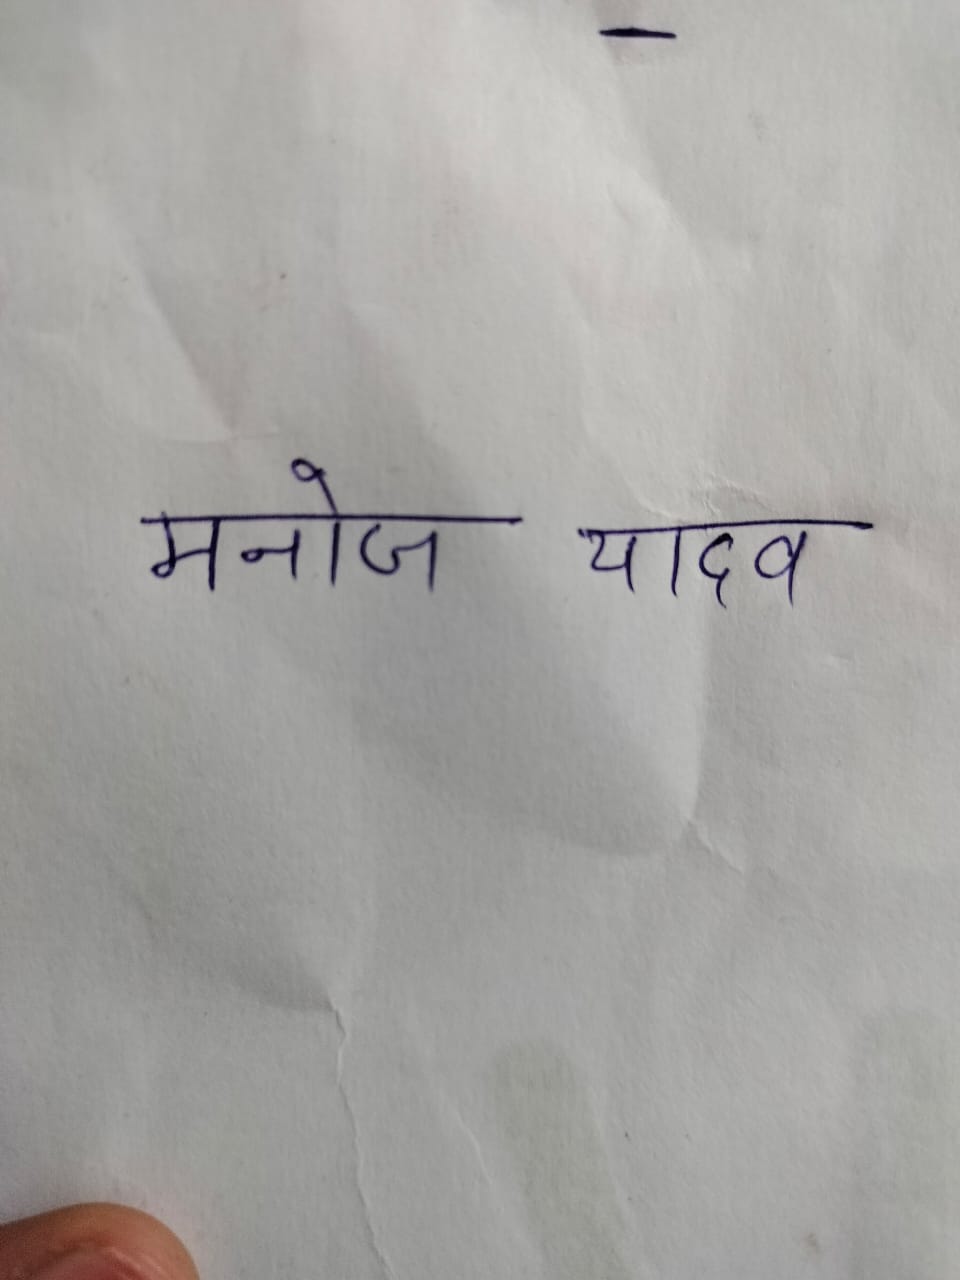 मनोज यादव